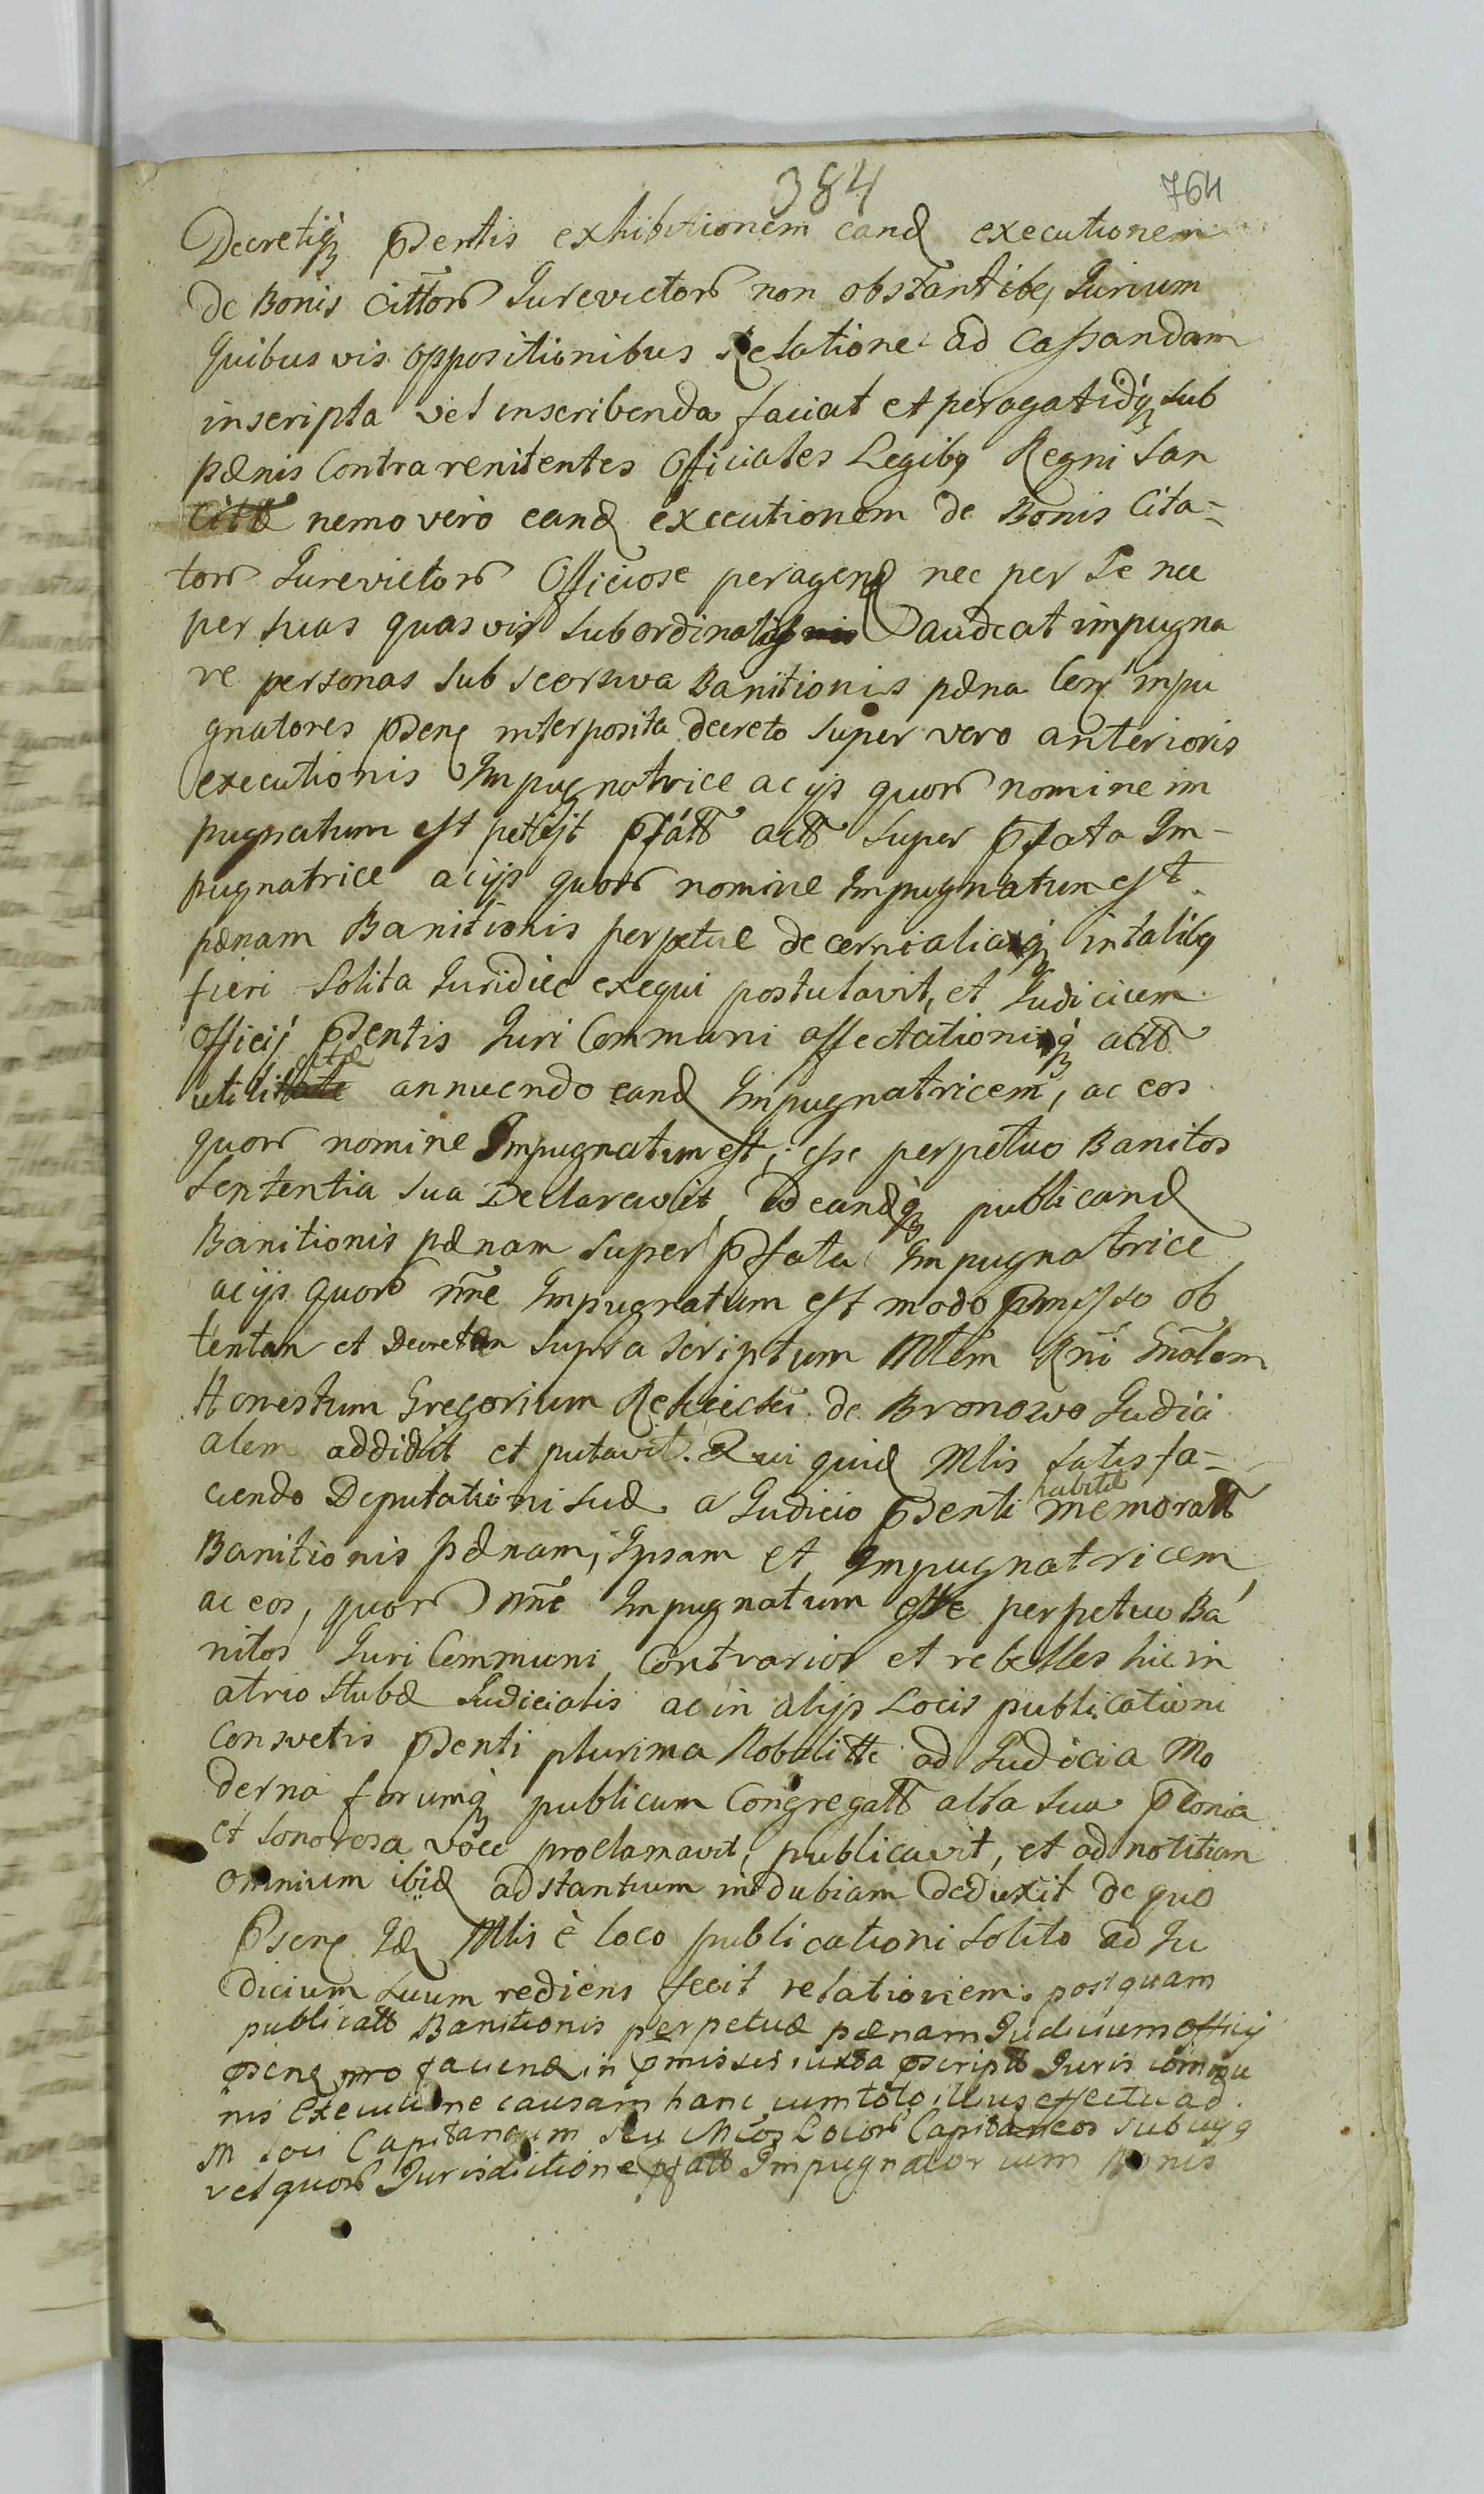 384 764
Decretiq₃ p̄sentis exhibitionem eand executionem
de Bonis Cittor Jurevictor non obstantibq Jurium
quibus vis oppositionibus Relatione ad Cassandam
inscripta vel inscribenda faciat et peragat idq₃ sub
pænis Contra renitentes Officiales Legibq Regni San
citt nemo verò eand executionem de Bonis Cita=
tor Jurevictor Officiose peragend nec per se nec
per suas quasvis subordinat audeat impugna
re personas sub seorsiva Banitionis pæna Con impu
gnatores p̄sen interposita decreto super vero anterioris
executionis Impugnatrice ac ijs quor nomine im
pugnatum est petijt p̄fatt actt super p̄fata Im-
pugnatrice ac ijs quor nomine Impugnatum est
pænam Banitionis perpetue decerni aliaq₃ in talibq
fieri solita Juridice exequi postulavit, et Judicium
Officij p̄sentis Juri Communi affectationiq₃ actt
citæ
utili annuendo eand Impugnatricem, ac eos
quor nomine Impugnatum est, esse perpetuo Banitos
Sententia sua Declaravit, Ad eandq₃ publicand
Banitionis pænam super p̄fata Impugnatrice
ac ijs quor nn̄e Impugnatum est modo p̄misso ob
tentam et Decretam supra scriptum Mlem Rn̄i Gn̄alem
Honestum Gregorium de Bronowo Judici
alem addidit et putavit. Qui quid Mlis satis fa=
ciendo Deputationi suæ a Judicio p̄senti habitæ memoratt
Banitionis pænam, Ipsam et Impugnatricem,
ac eos, quor nn̄e Impugnatum esse perpetuo Ba
nitos Juri Communi Contrarios et rebelles hic in
atrio Stubæ Judicialis ac in alijs Locis publicationi
Consvetis p̄senti plurima Nobilitte ad Judicia Mo
derna forumq₃ publicum Congregatt alta sua p̄conia
et sonorosa voce proclamavit, publicavit, et ad notitiam
omnium ibid adstantium indubiam deduxit de quo
p̄sen Id Mlis è loco publicationi solito ad Ju
dicium suum rediens fecit relationem. postquam
publicatt Banitionis perpetuæ pænam Judicium Officij
p̄sens pro faciend in p̄missis iuxta p̄script Juris commu
nis Executione causam hanc cum toto illius effectu ad
M loci Capitaneum seu Mcos Locor Capitaneos sub cujq
vel quor Jurisdictione p̄fatt Impugnator cum Bonis